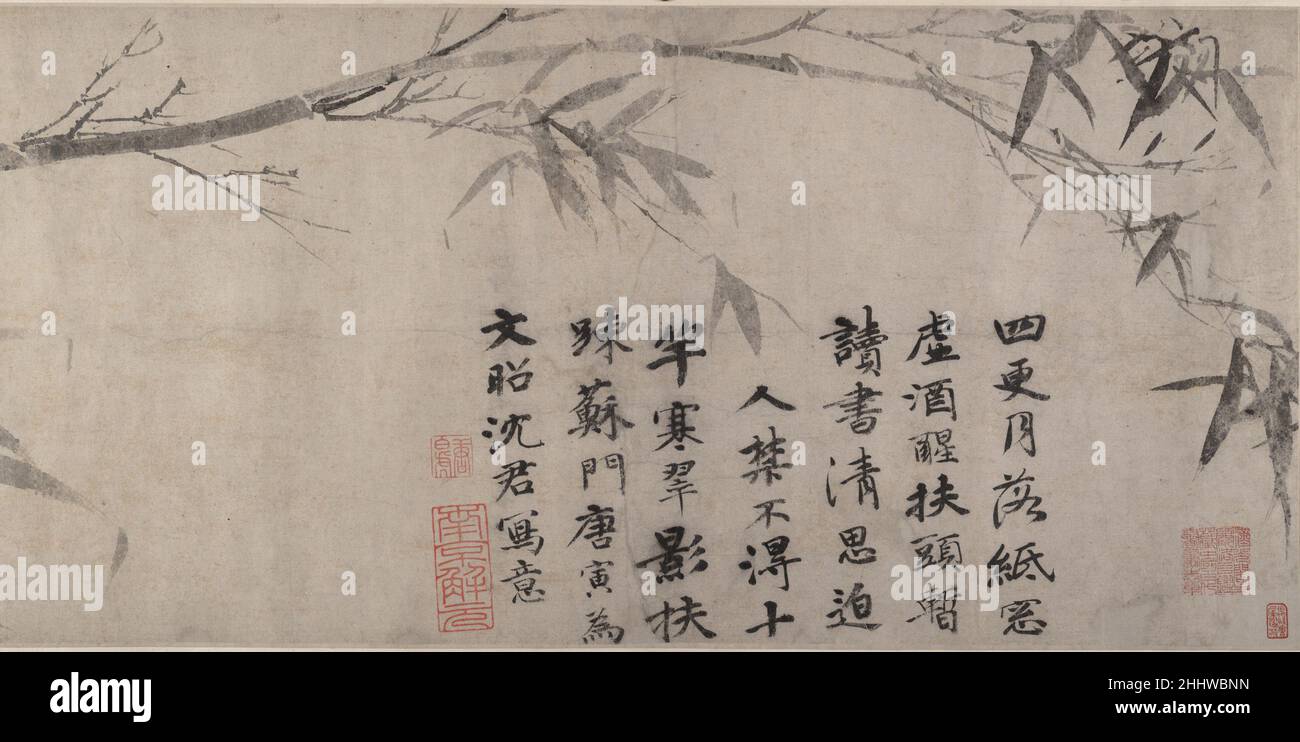 四更月落紙窓
虛酒醒扶頭暫
讀書清思迫
人禁不得十
竿寒翠影扶
踈蘇門唐寅為
文昭沈君寫意
唐寅
南京解元
alamy
Image ID: 2HHWBNN
www.alamy.com